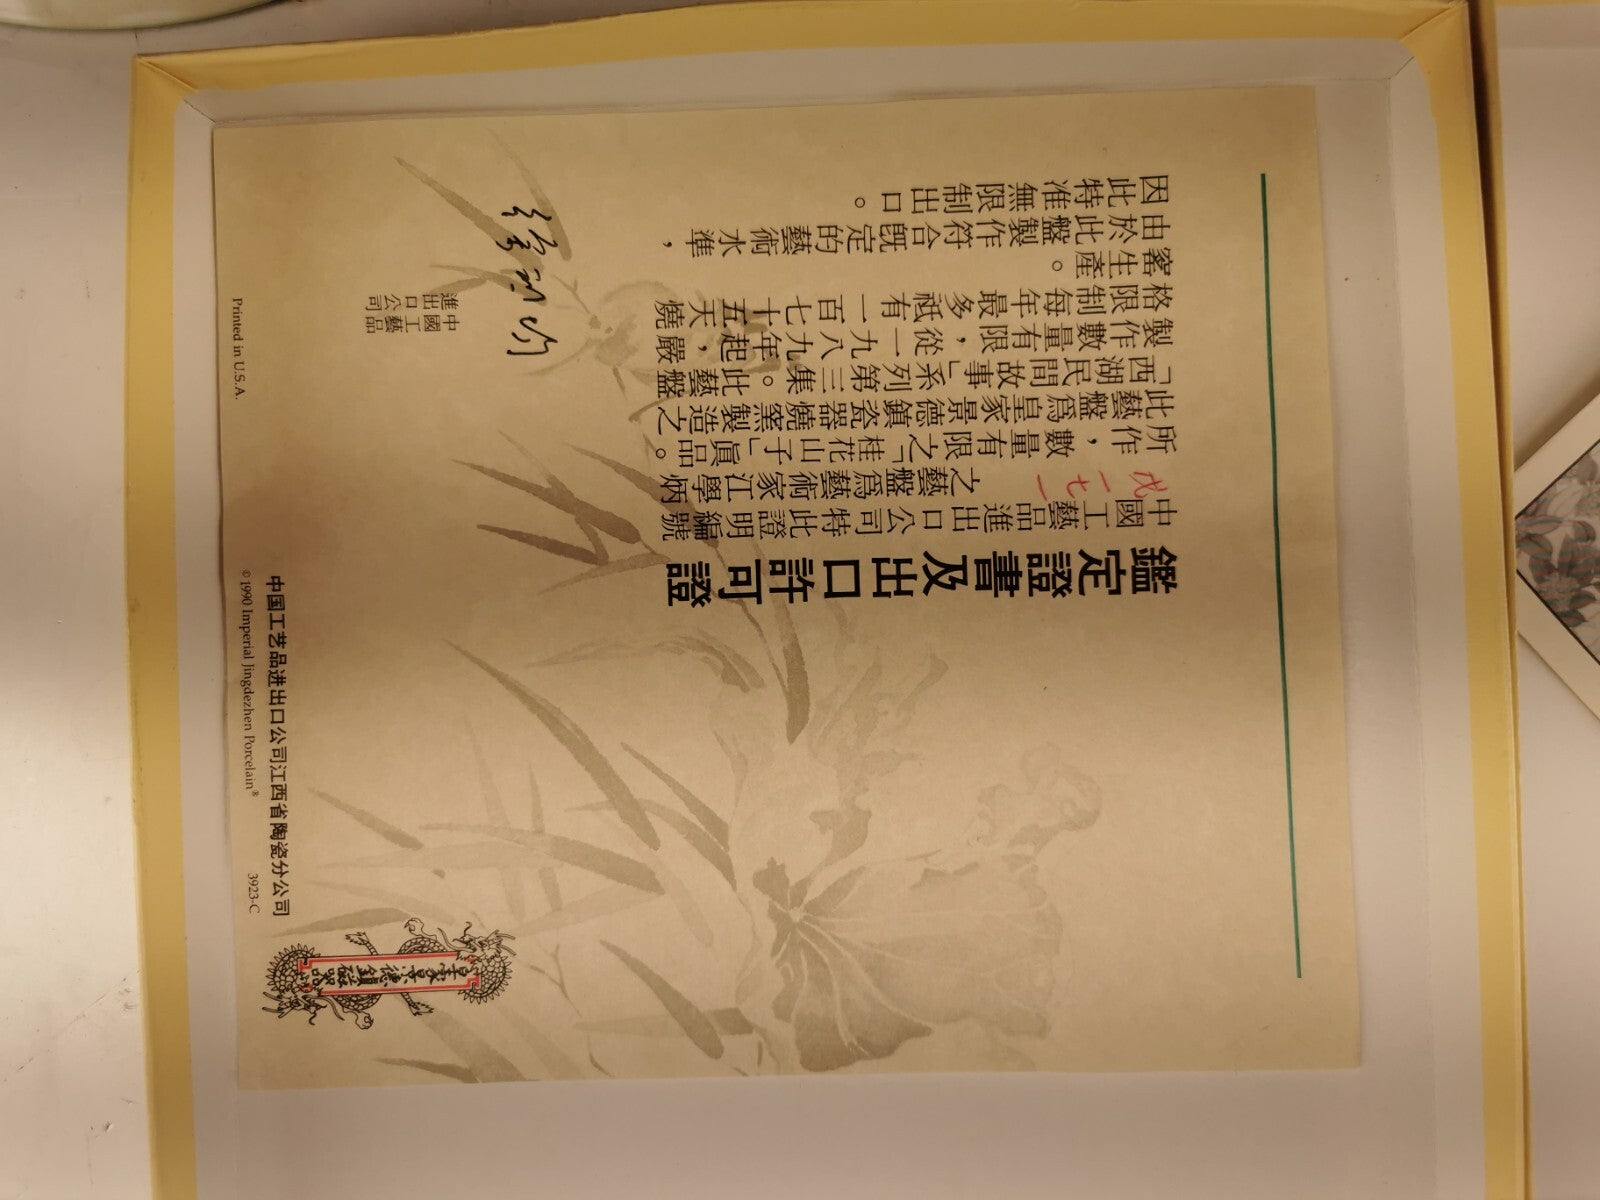 鑑定證書及出口許可證
中國工藝品進出口公司特此證明編號
戊一七一之藝盤爲藝術家江學炳
所作，數量有限之「桂花山子」眞品。
此藝盤爲皇家景德鎮瓷器燒窯製造之
「西湖民間故事」系列第三集。此藝盤
製作數量有限，從一九八九年起，嚴
格限制每年最多祗有一百七十五天燒
窰生產。
由於此盤製作符合旣定的藝術水準，
因此特准無限制出口。
中國工藝品
進出口公司
皇家景德鎮磁器
中国工艺品进出口公司江西省陶瓷分公司
© 1990 Imperial Jingdezhen Porcelain® 3923-C
Printed in U.S.A.